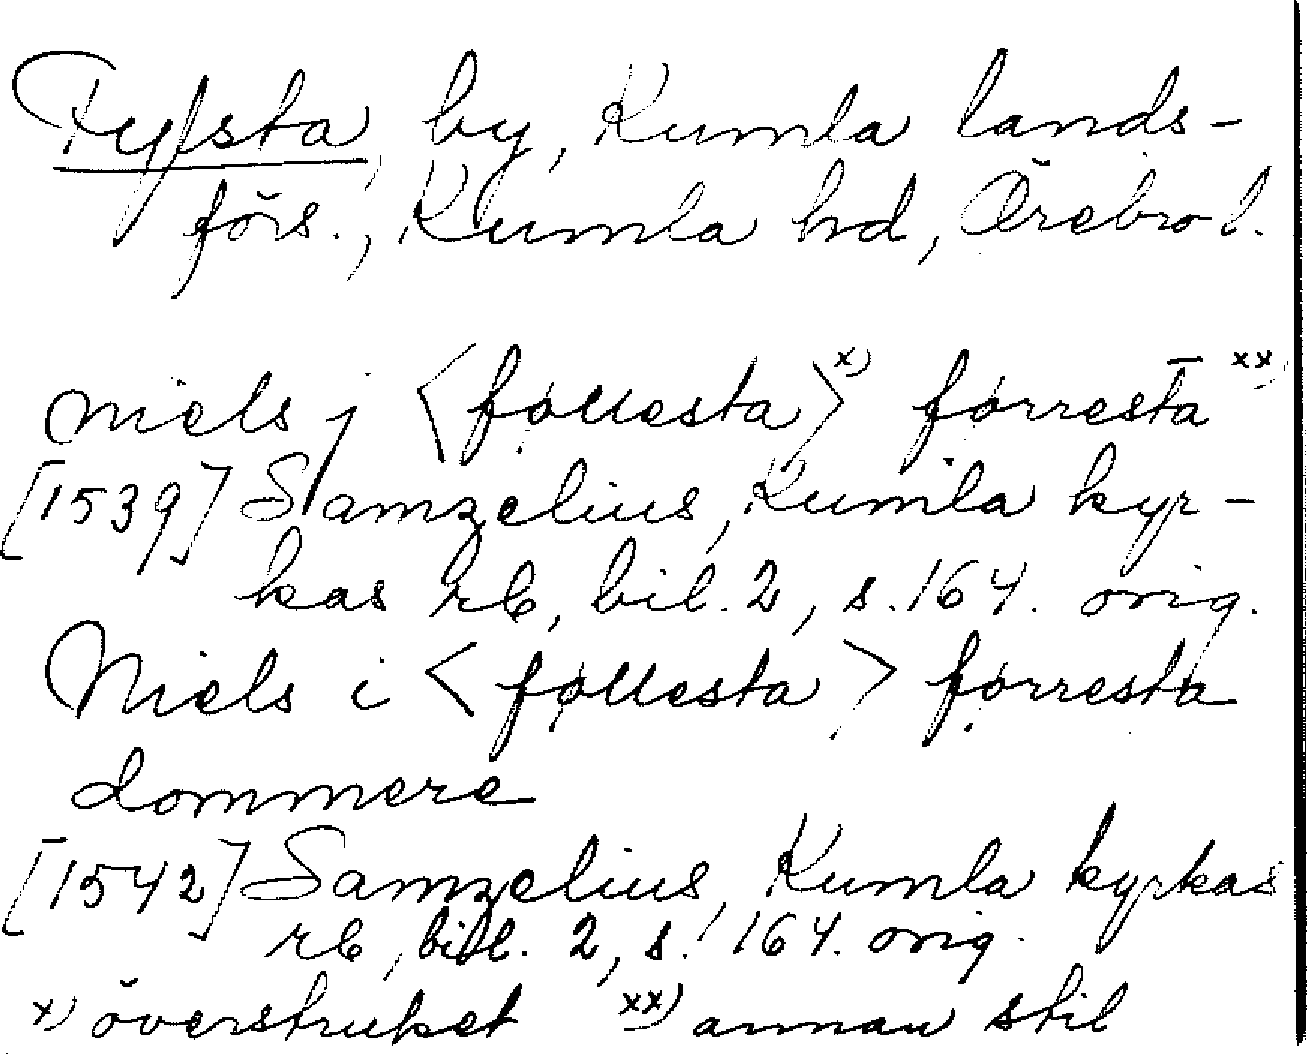 Fylsta, by, Kumla lands-
förs., Kumla hd, Örebro l.
niels j <føllesta>x) førresta xx)
[1539] Samzelius, Kumla kyr-
kas rb, bil. 2, s. 164. orig.
Niels i <føllesta> førresta
dommere
[1542] Samzelius, Kumla kyrkas
rb, bil. 2, s. 164. orig.
x) överstruket xx) annan stil